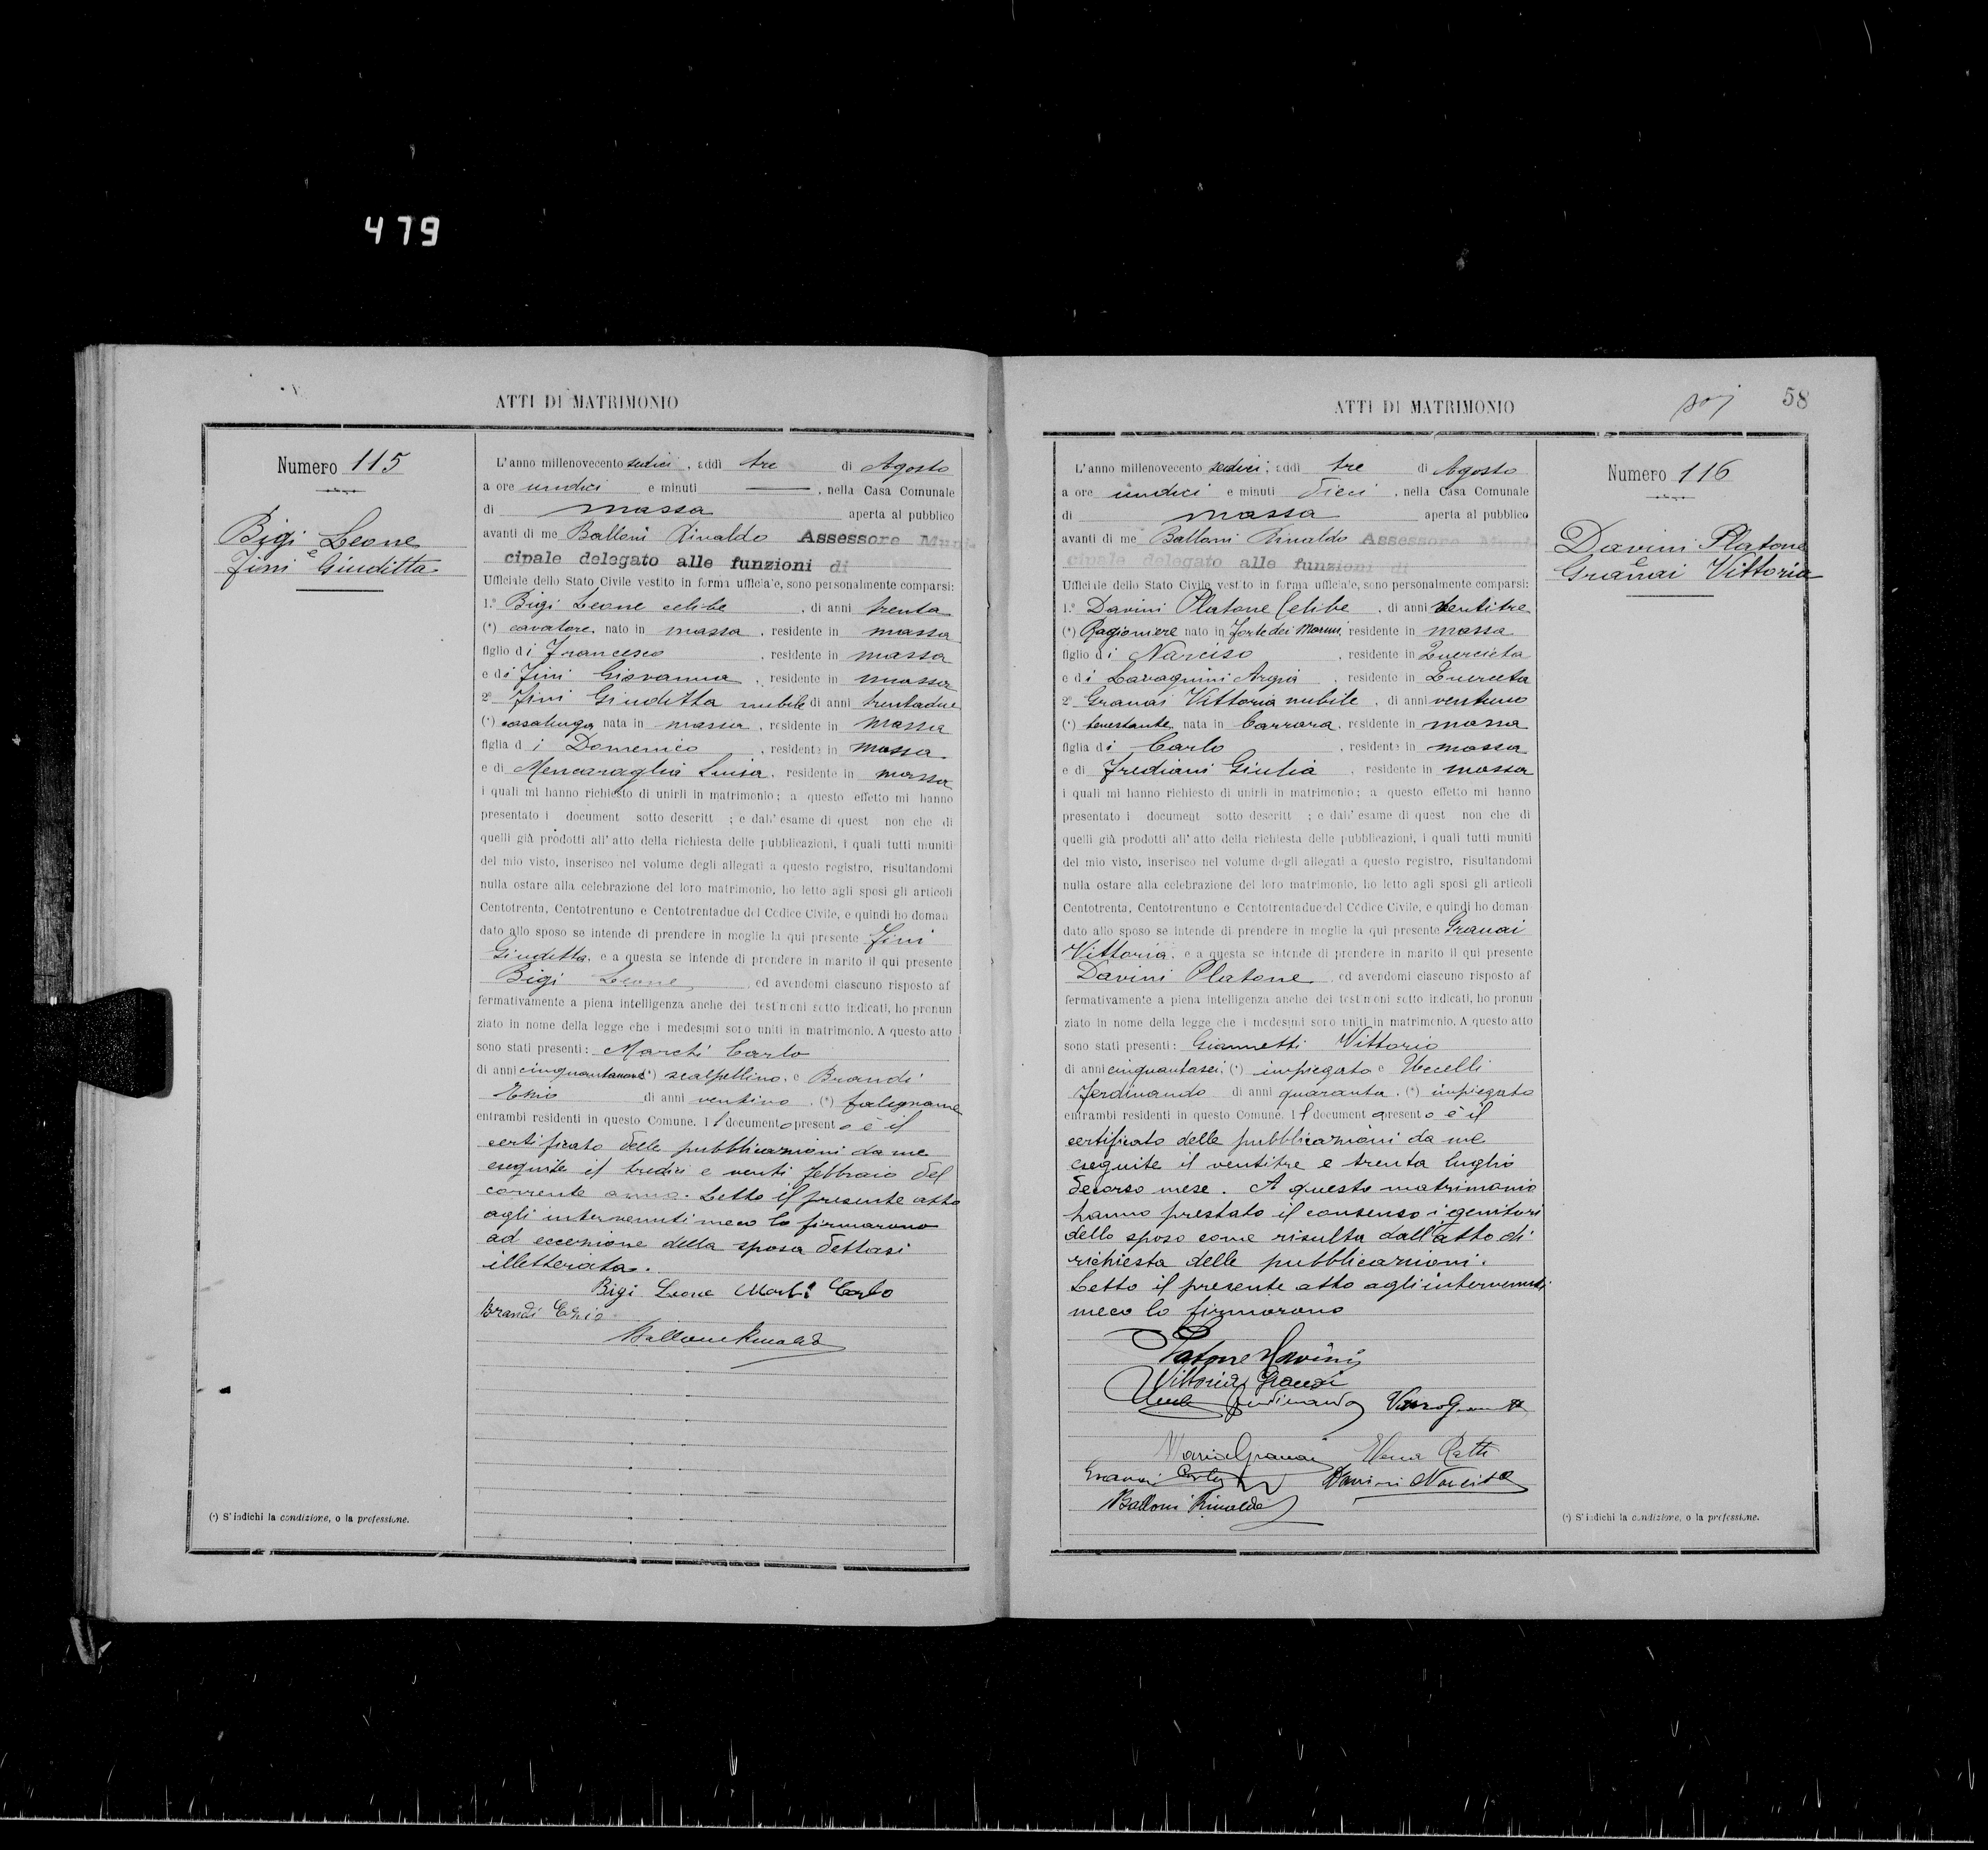 479
ATTI DI MATRIMONIO
Numero 115
Bigi Leone
e
Fini Giuditta
L'anno millenovecento sedici, addì tre di Agosto
a ore undici e minuti ———, nella Casa Comunale
di Massa aperta al pubblico
avanti di me Balloni Rinaldo Assessore Muni-
cipale delegato alle funzioni di
Ufficiale dello Stato Civile vestito in forma ufficiale, sono personalmente comparsi:
1.° Bigi Leone celibe, di anni trenta
(*) cavatore, nato in Massa, residente in Massa
figlio di Francesco, residente in Massa
e di Fini Giovanna, residente in Massa
2° Fini Giuditta nubile di anni trentadue
(*) casalinga nata in Massa, residente in Massa
figlia di Domenico, residente in Massa
e di Mencaraglia Luisa, residente in Massa
i quali mi hanno richiesto di unirli in matrimonio; a questo effetto mi hanno
presentato i document sotto descritt ; e dall'esame di quest non che di
quelli già prodotti all'atto della richiesta delle pubblicazioni, i quali tutti muniti
del mio visto, inserisco nel volume degli allegati a questo registro, risultandomi
nulla ostare alla celebrazione del loro matrimonio, ho letto agli sposi gli articoli
Centotrenta, Centotrentuno e Centotrentadue del Codice Civile, e quindi ho doman
dato allo sposo se intende di prendere in moglie la qui presente Fini
Giuditta, e a questa se intende di prendere in marito il qui presente
Bigi Leone, ed avendomi ciascuno risposto af
fermativamente a piena intelligenza anche dei testimoni sotto indicati, ho pronun
ziato in nome della legge che i medesimi sono uniti in matrimonio. A questo atto
sono stati presenti: Marchi Carlo
di anni cinquantanove (*) scalpellino, e Brandi
Enio di anni ventuno, (*) falegname
entrambi residenti in questo Comune. Il documento presento è il
certificato delle pubblicazioni da me
eseguite il tredici e venti Febbraio del
corrente anno. Letto il presente atto
agli intervenuti meco lo firmarono
ad eccezione della sposa dettasi
illetterata.
Bigi Leone Marchi Carlo
Brandi Enio
Balloni Rinaldo
(*) S'indichi la condizione, o la professione.
ATTI DI MATRIMONIO
58
Numero 116
Davini Platone
e
Granai Vittoria
L'anno millenovecento sedici, addì tre di Agosto
a ore undici e minuti dieci, nella Casa Comunale
di Massa aperta al pubblico
avanti di me Balloni Rinaldo Assessore Muni
cipale delegato alle funzioni di
Ufficiale dello Stato Civile vestito in forma ufficiale, sono personalmente comparsi:
1.° Davini Platone Celibe, di anni ventitre
(*) Ragioniere nato in Forte dei Marmi, residente in Massa
figlio di Narciso, residente in Querceta
e di Lavagnini Argia, residente in Querceta
2° Granai Vittoria nubile, di anni ventuno
(*) benestante nata in Carrara, residente in Massa
figlia di Carlo, residente in Massa
e di Frediani Giulia, residente in Massa
i quali mi hanno richiesto di unirli in matrimonio; a questo effetto mi hanno
presentato i document sotto descritt ; e dall'esame di quest non che di
quelli già prodotti all'atto della richiesta delle pubblicazioni, i quali tutti muniti
del mio visto, inserisco nel volume degli allegati a questo registro, risultandomi
nulla ostare alla celebrazione del loro matrimonio, ho letto agli sposi gli articoli
Centotrenta, Centotrentuno e Centotrentadue del Codice Civile, e quindi ho doman
dato allo sposo se intende di prendere in moglie la qui presente Granai
Vittoria, e a questa se intende di prendere in marito il qui presente
Davini Platone, ed avendomi ciascuno risposto af
fermativamente a piena intelligenza anche dei testimoni sotto indicati, ho pronun
ziato in nome della legge che i medesimi sono uniti in matrimonio. A questo atto
sono stati presenti: Giannetti Vittorio
di anni cinquantasei, (*) impiegato e Uccelli
Ferdinando di anni quaranta, (*) impiegato
entrambi residenti in questo Comune. Il document presento è il
certificato delle pubblicazioni da me
eseguite il ventitre e trenta luglio
decorso mese. A questo matrimonio
hanno prestato il consenso i genitori
dello sposo come risulta dall'atto di
richiesta delle pubblicazioni.
Letto il presente atto agli intervenuti
meco lo firmarono
Platone Davini
Vittoria Granai
Ferdinando
Maria Granai Elena Ratti
Granai Carlo Davini Narciso
Balloni Rinaldo
(*) S'indichi la condizione, o la professione.